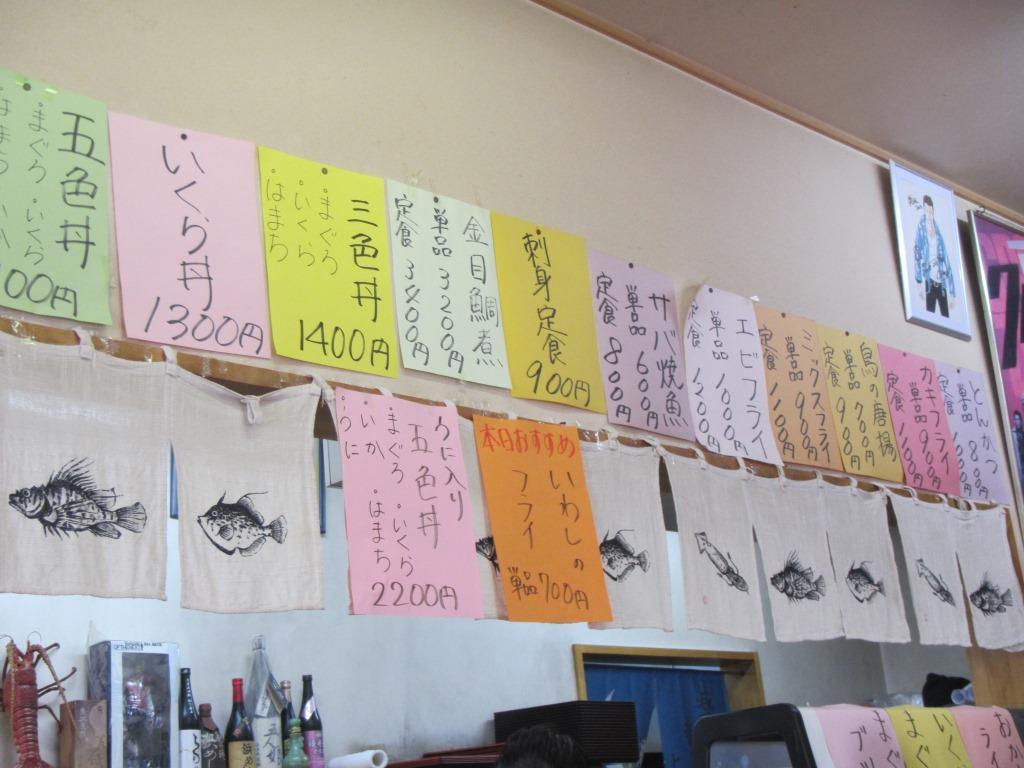 五色丼
・まぐろ ・いくら
・はまち ・いか
00円
いくら丼
1300円
三色丼
・まぐろ
・いくら
・はまち
1400円
金目鯛煮
単品 3200円
定食 3400円
刺身定食
900円
サバ焼魚
単品 600円
定食 800円
エビフライ
単品 1000円
定食 1200円
ミックスフライ
単品 900円
定食 1100円
鳥の唐揚
単品 700円
定食 900円
カキフライ
単品 900円
定食 1100円
とんかつ
単品 800円
うに入り
五色丼
・まぐろ ・いくら
・いか ・はまち
・うに
2200円
本日おすすめ
いわしの
フライ
単品 700円